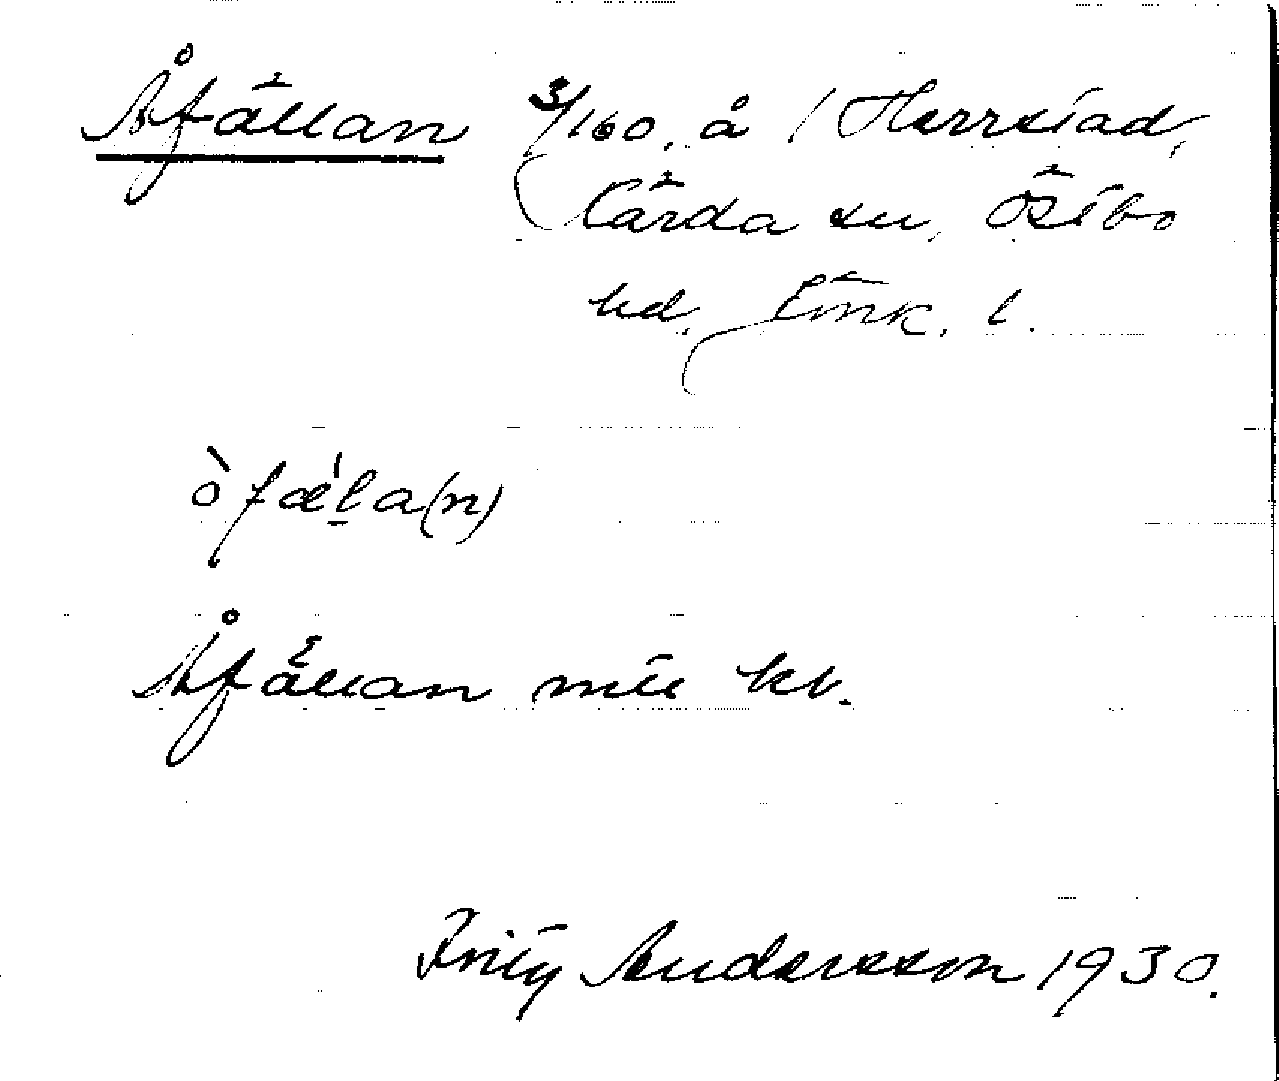 Åfällan 3/160, å i Härrestad,
Kärda sn, Östbo
hd, Jönk. l.
ò fæ̀l̠a(n)
Åfällan mitt kv.
Fritz Andersson 1930.